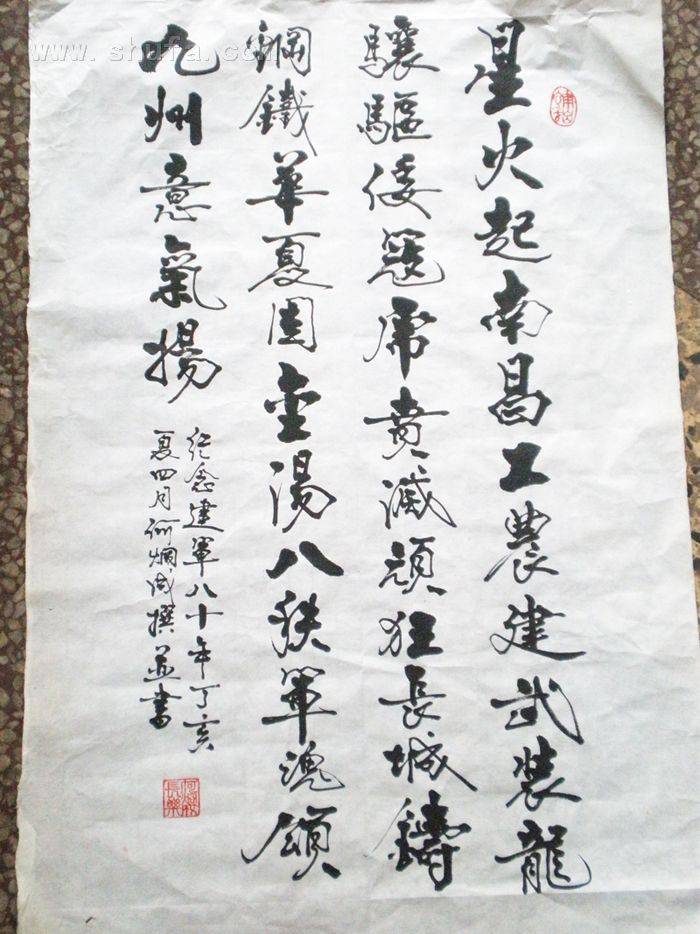 星火起南昌工農建武裝龍
驤驅倭寇虎賁滅頑狂長城鑄
鋼鐵華夏固金湯八秩軍魂頌
九州意氣揚
紀念建軍八十年丁亥
夏四月何撰並書
www.shufa.com